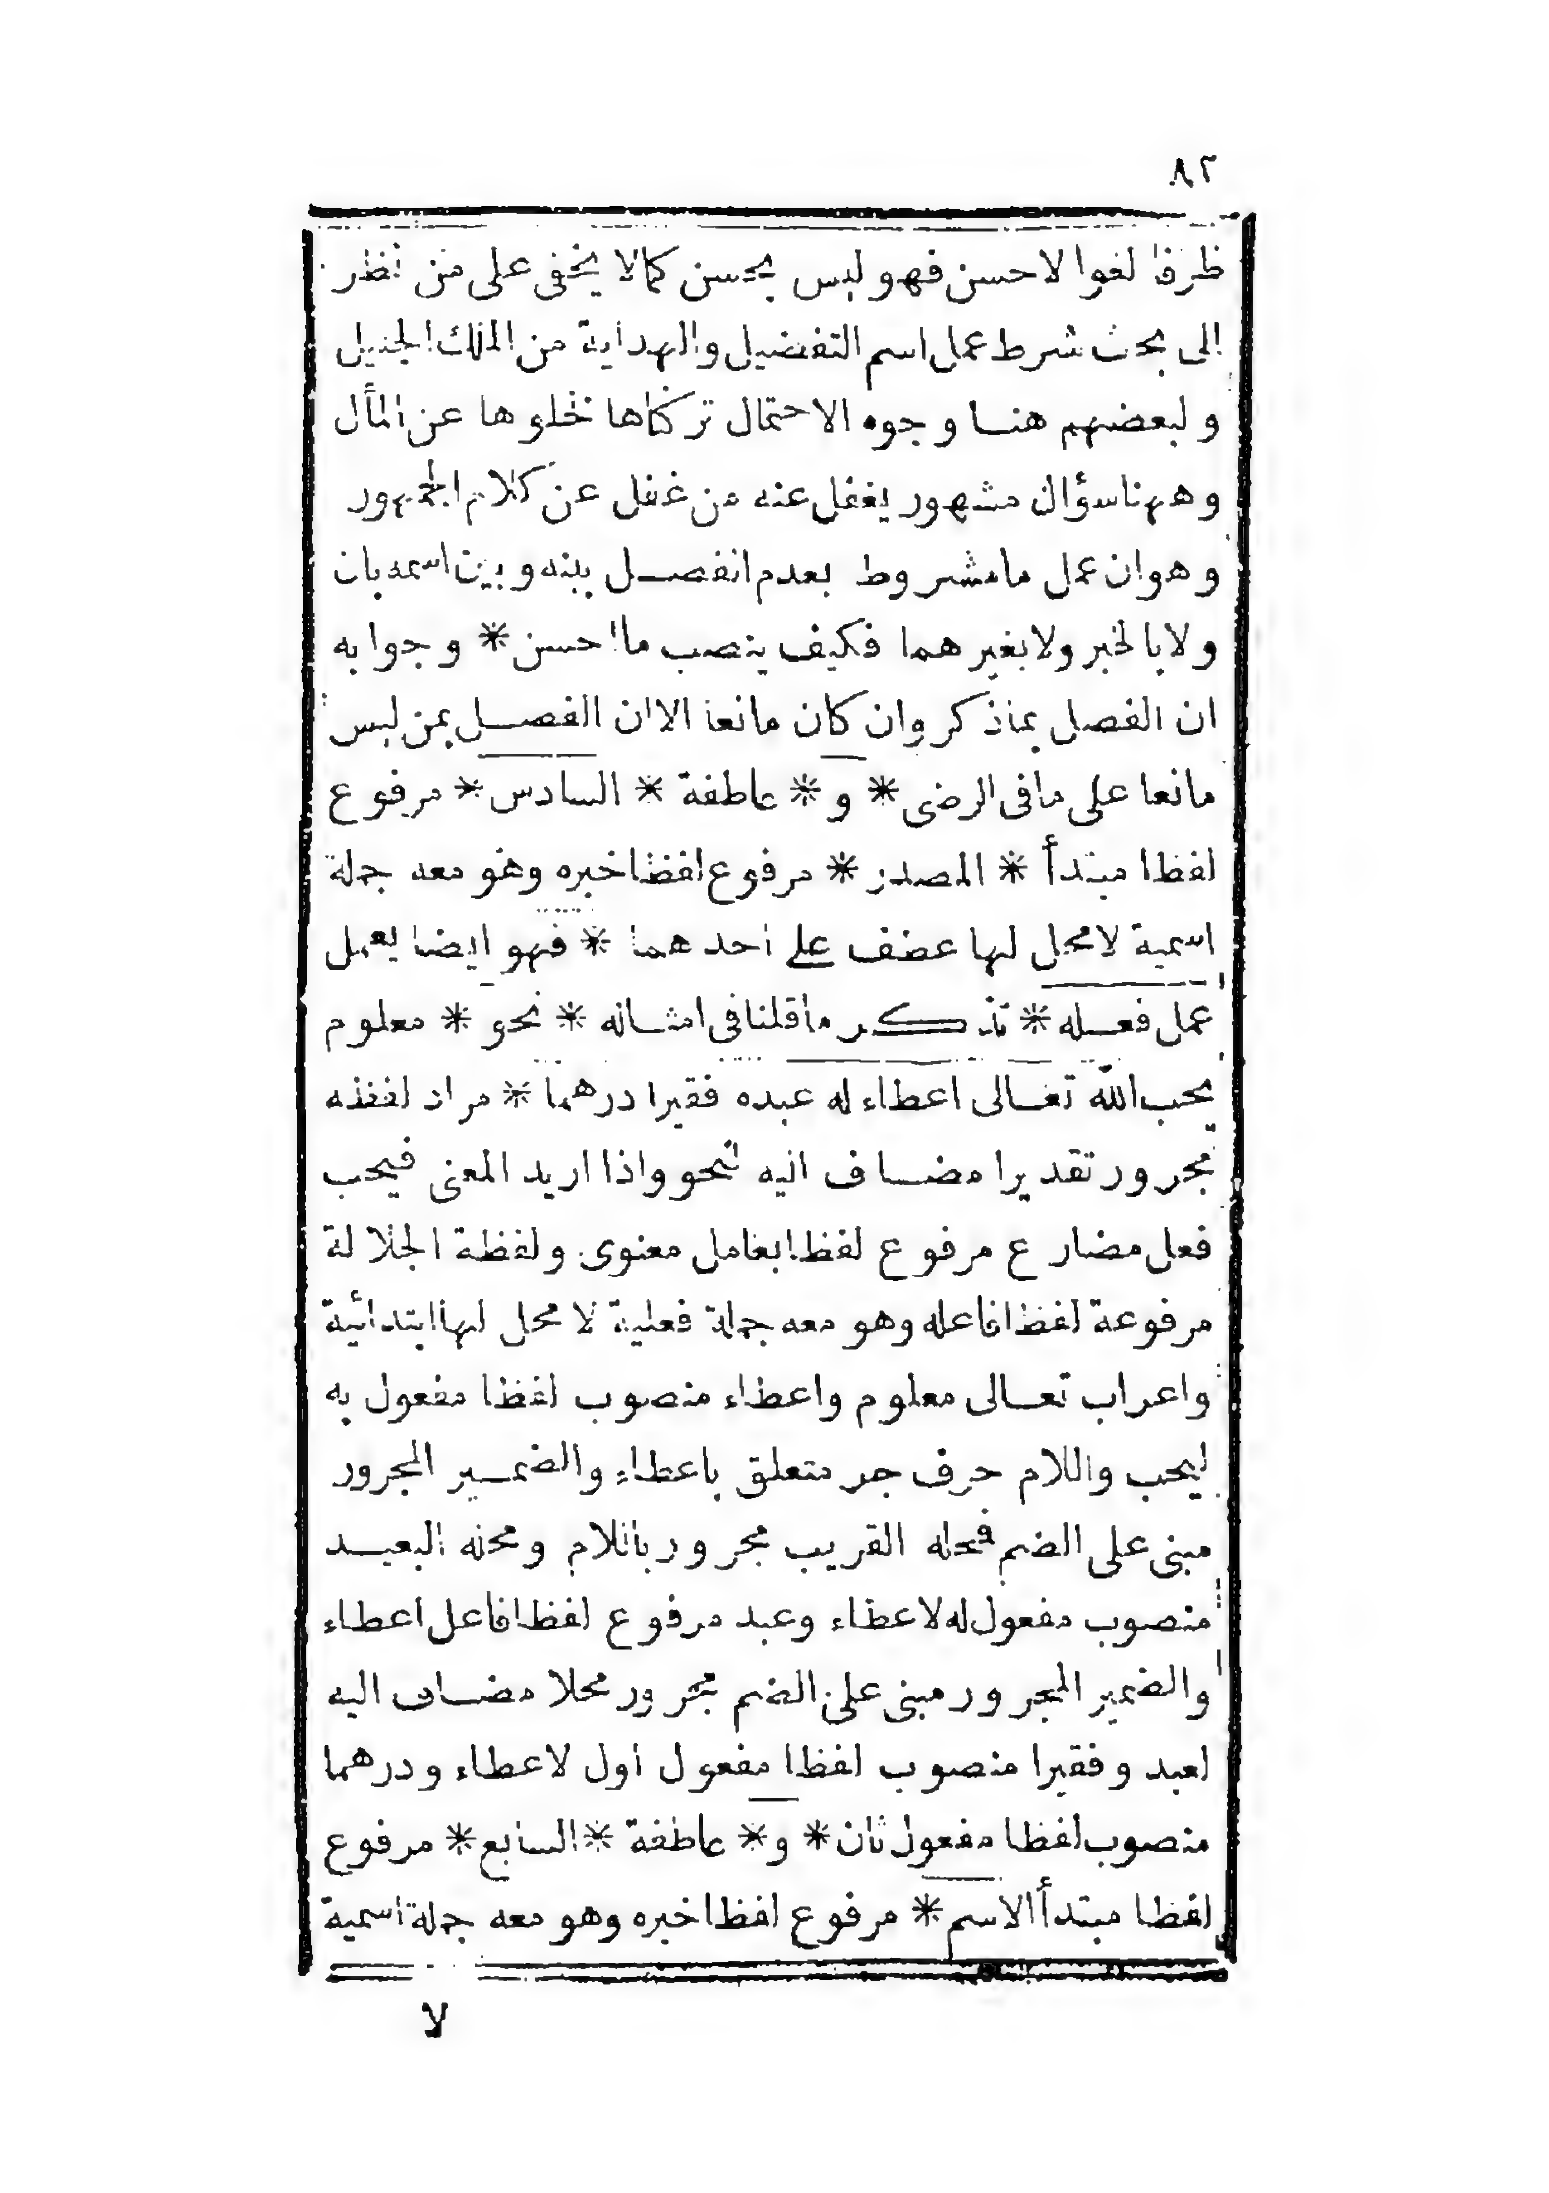 ٨٢
ظرفا لغوا لاحسن فهو ليس بحسن كمالا يخفى على من نظر
الى بحث شرط عمل اسم التفضيل والهداية من الملك الجليل
ولبعضهم هنا وجوه الاحتمال تركناها لخلوها عن المأل
وههنا سؤال مشهور يغفل عنه من غفل عن كلام الجمهور
وهو ان عمل ما مشروط بعدم انفصل بينه وبين اسمه بان
ولا بالخبر ولا بغيرهما فكيف ينصب ما احسن * وجوابه
ان الفصل بماذكر وان كان مانعا الا ان الفصل بمن ليس
مانعا على ما فى الرضى * و * عاطفة * السادس * مرفوع
لفظا مبتدأ * المصدر * مرفوع لفظا خبره وهو معه جملة
اسمية لا محل لها عطف على احدهما * فهو ايضا يعمل
عمل فعله * تذكر ما قلنا فى امثاله * نحو * معلوم
يحب الله تعالى اعطاء له عبده فقيرا درهما * مراد لفظه
مجرور تقديرا مضاف اليه لنحو واذا اريد المعنى فيحب
فعل مضارع مرفوع لفظا بعامل معنوى ولفظة الجلالة
مرفوعة لفظا فاعله وهو معه جملة فعلية لا محل لها ابتدائية
واعراب تعالى معلوم واعطاء منصوب لفظا مفعول به
ليحب واللام حرف جر متعلق باعطاء والضمير المجرور
مبنى على الضم فمحله القريب مجرور باللام ومحله البعيد
منصوب مفعول له لاعطاء وعبد مرفوع لفظا فاعل اعطاء
والضمير المجرور مبنى على الضم مجرور محلا مضاف اليه
لعبد وفقيرا منصوب لفظا مفعول اول لاعطاء ودرهما
منصوب لفظا مفعول ثان * و * عاطفة * السابع * مرفوع
لفظا مبتدأ الاسم * مرفوع لفظا خبره وهو معه جملة اسمية
لا